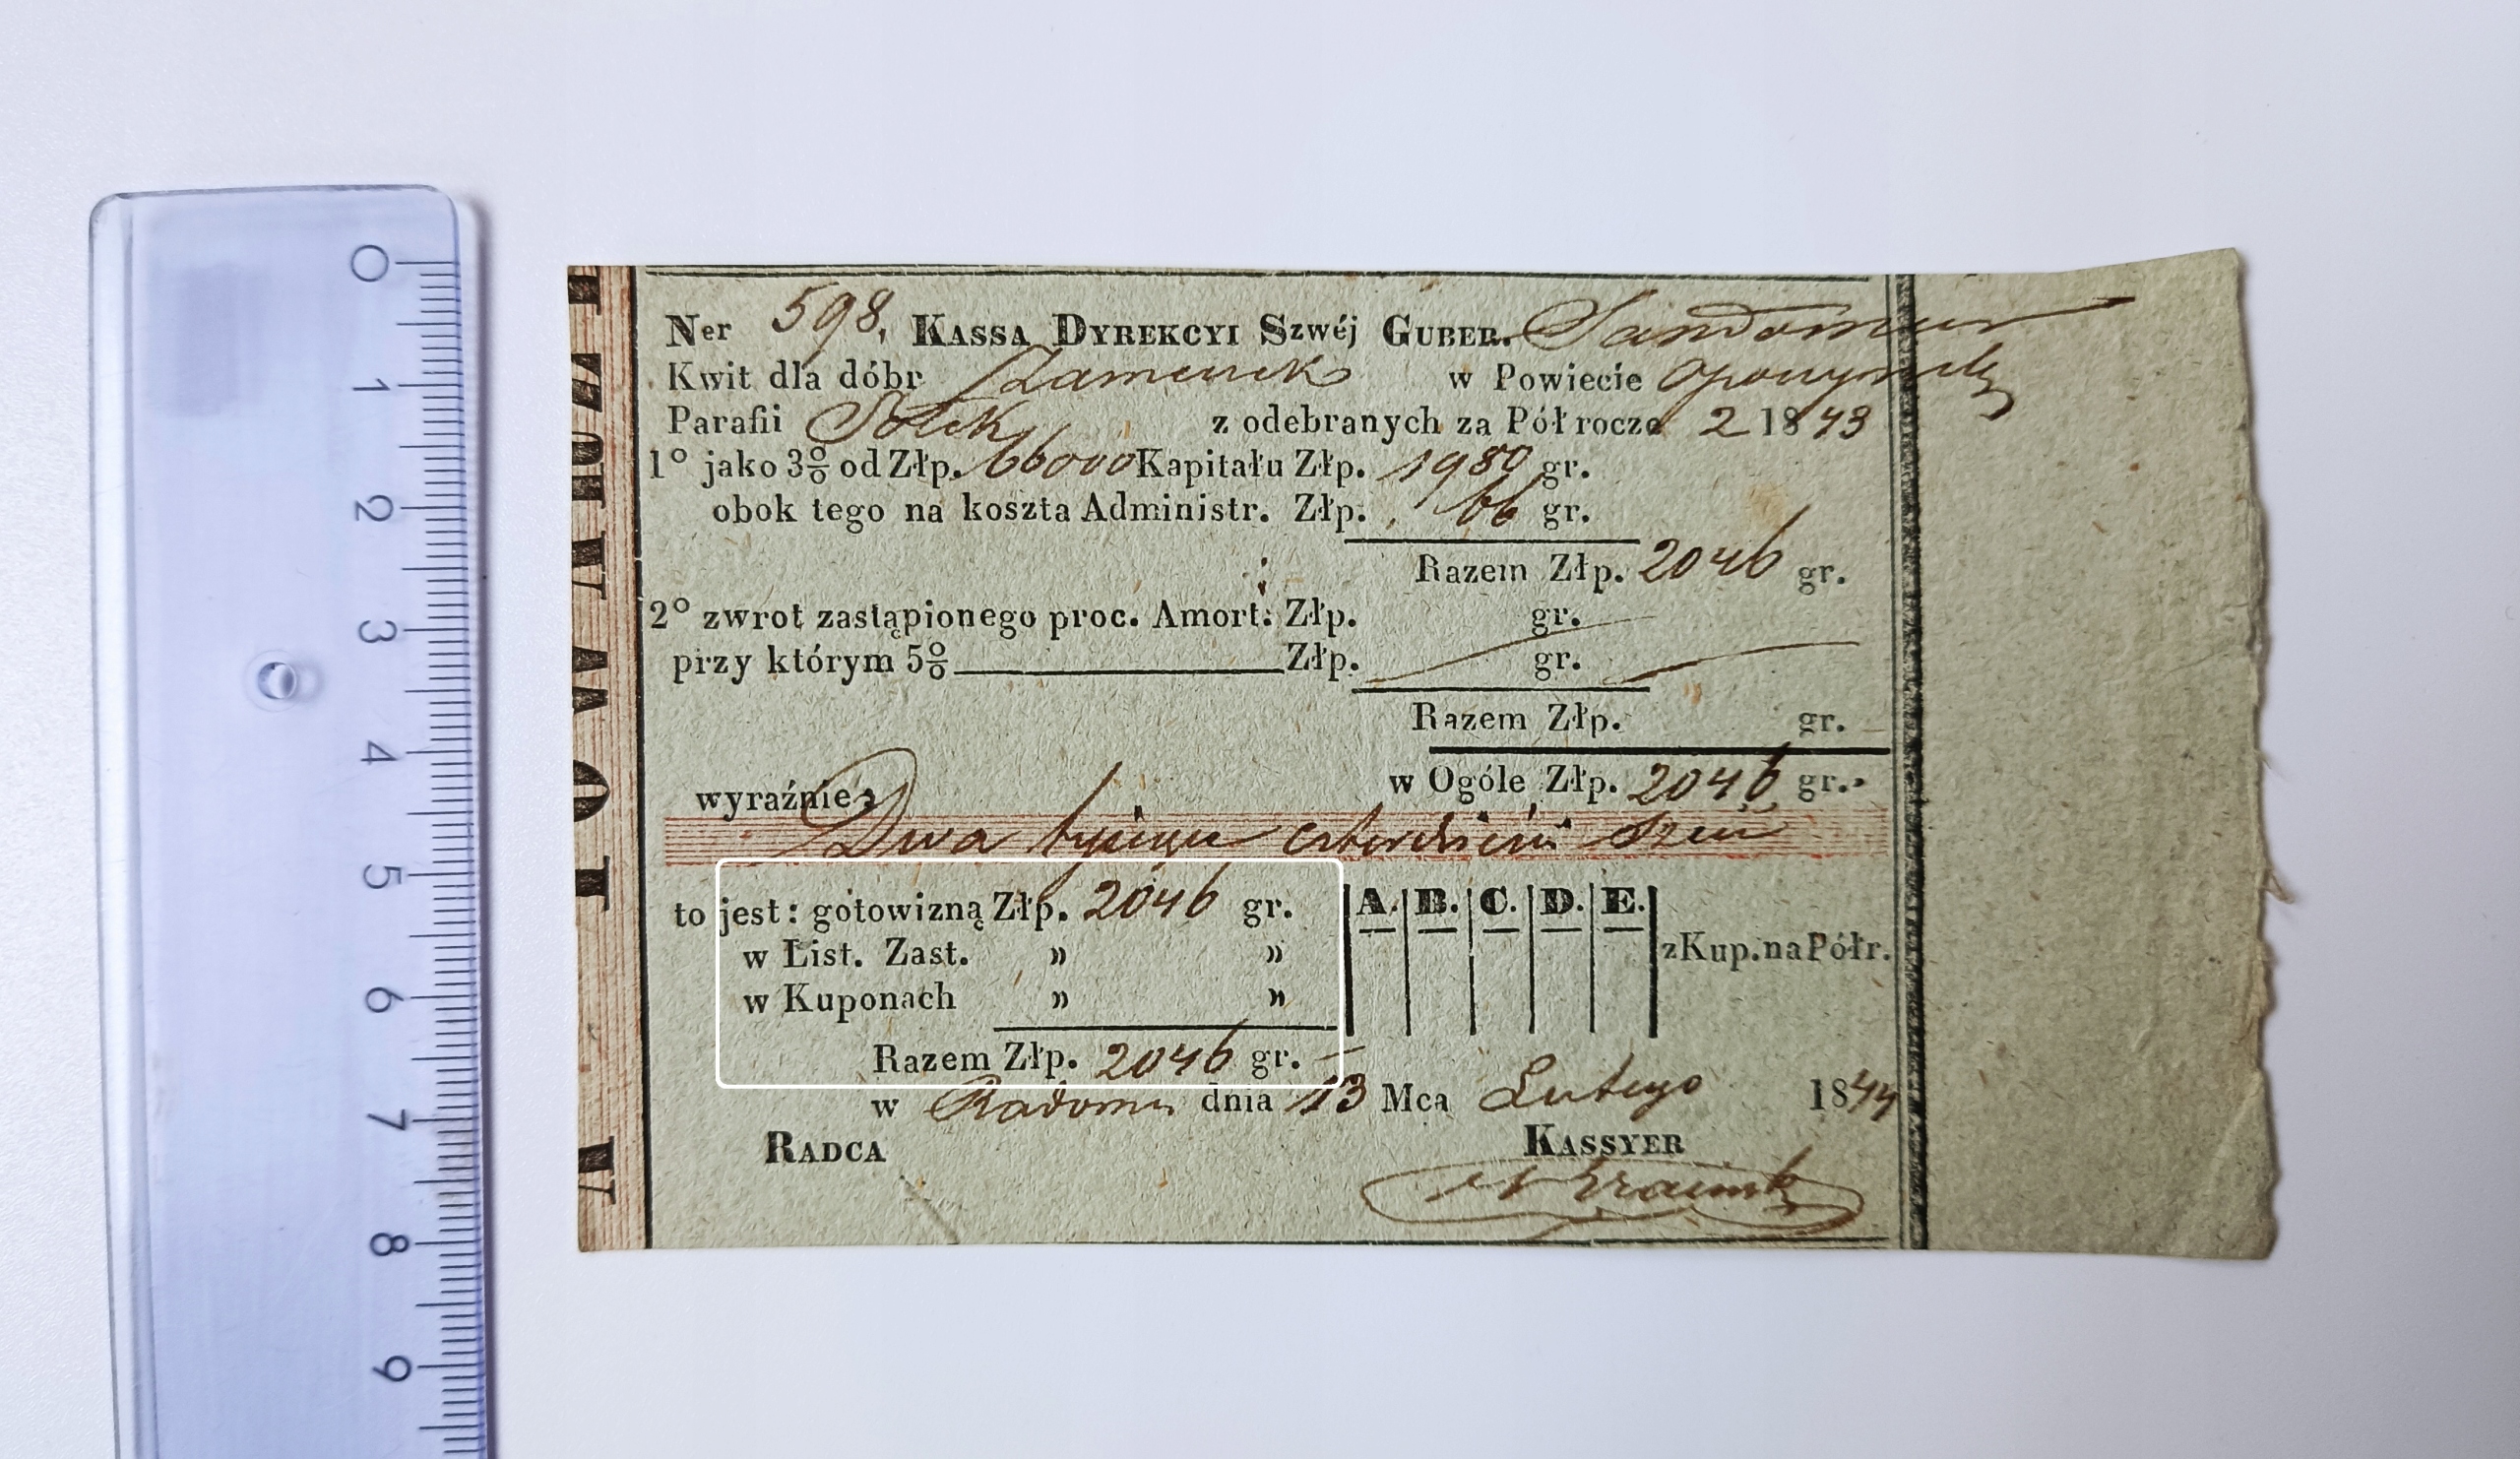 Ner 598. KASSA DYREKCYI Szwéj GUBER. Sandomier
Kwit dla dóbr w Powiecie
Parafii z odebranych za Półrocze 2 1843
1° jako 3% od Złp. 66000 Kapitału Złp. 1980 gr.
obok tego na koszta Administr. Złp. 66 gr.
Razem Złp. 2046 gr.
2° zwrot zastąpionego proc. Amort: Złp. gr.
przy którym 5% Złp. gr.
Razem Złp. gr.
w Ogóle Złp. 2046 gr.
wyraźnie
Dwa tysiące czterdzieści sześć
to jest: gotowizną Złp. 2046 gr.
w List. Zast. » »
w Kuponach » »
A. B. C. D. E.
z Kup. na Półr.
Razem Złp. 2046 gr. —
w Radomiu dnia 13 Mca Lutego 1844
RADCA KASSYER
TOWARZ
0
1
2
3
4
5
6
7
8
9